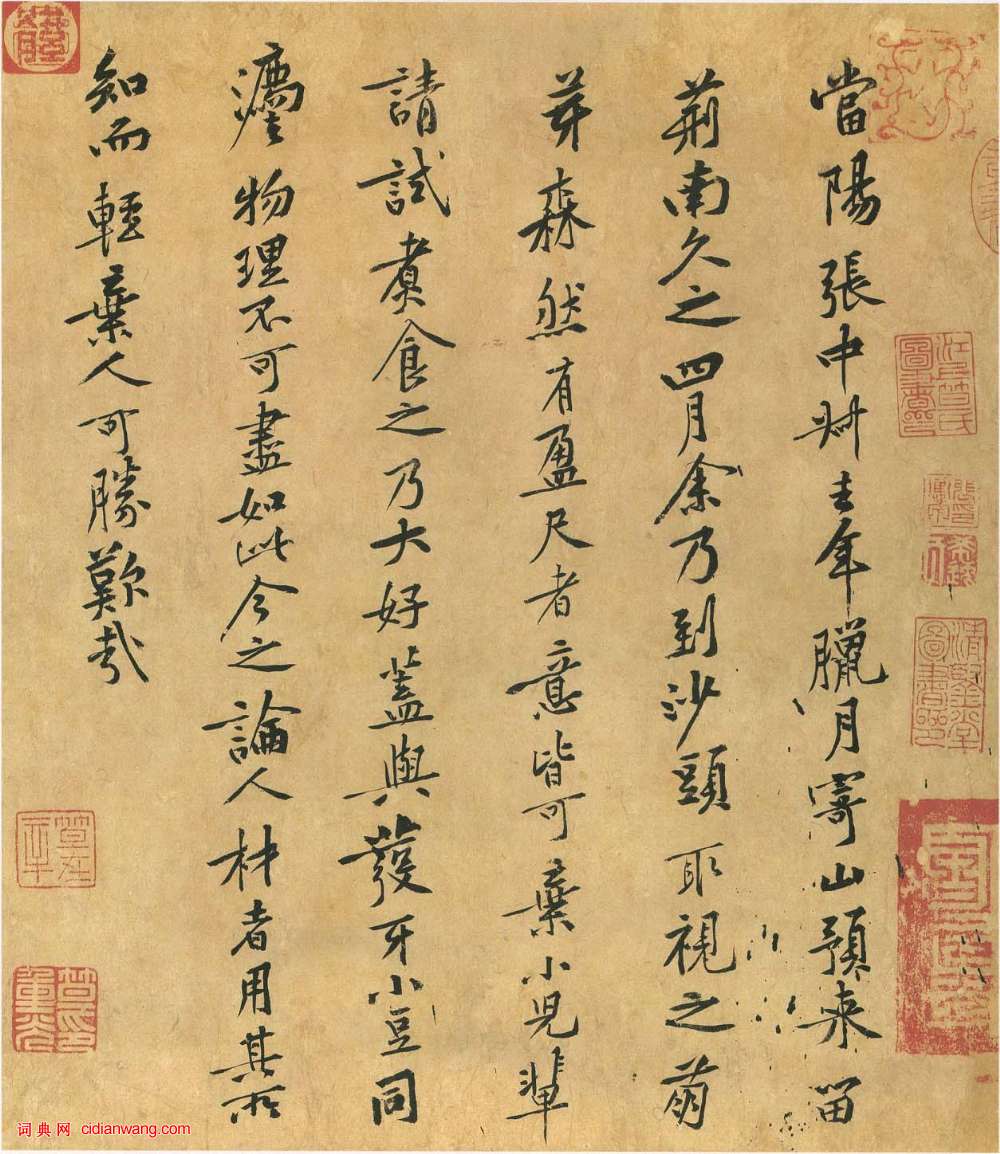 當陽張中叔去年臘月寄山預來留
荊南久之四月余乃到沙頭取視之萌
芽森然有盈尺者意皆可棄小兒輩
請試煑食之乃大好蓋與發牙小豆同
灋物理不可盡如此今之論人材者用其所
知而輕棄人可勝歎哉
词典网 cidianwang.com